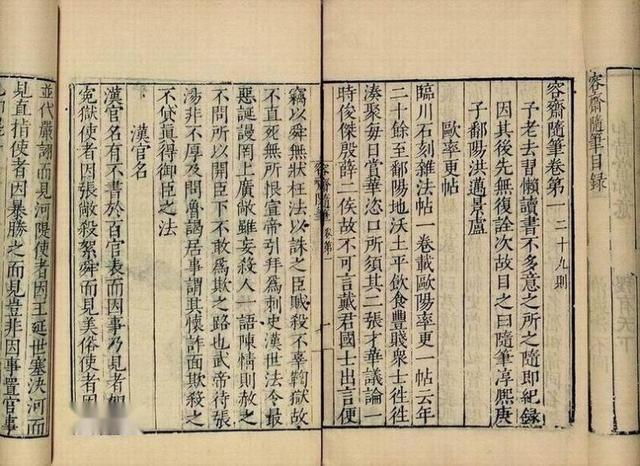 容齋隨筆目録
容齋隨筆卷第一 二十九則
予老去習懶讀書不多意之所之隨即紀錄
因其後先無復詮次故目之曰隨筆淳熙庚
子鄱陽洪邁景盧
歐率更帖
臨川石刻雜法帖一卷載歐陽率更一帖云年
二十餘至鄱陽地沃土平飲食豐賤衆士徃徃
湊聚每日賞華恣口所須其二張才華議論一
時俊傑殷薛二侯故不可言戴君國士出言便
容齋隨筆 卷第一
竊以舜無狀枉法以誅之臣賊殺不辜鞫獄故
不直死無所恨宣帝引拜爲刺史漢世法令最
惡誕謾罔上廣敞雖妄殺人一語陳情則赦之
不問所以開臣下不敢爲欺之路也武帝待張
湯非不厚及問魯謁居事謂其懷詐面欺殺之
不貸眞得御臣之法
漢官名
漢官名有不書於百官表而因事乃見者如
冤獄使者因張敞殺絮舜而見美俗使者因
並代嚴詡而見河隄使者因王延世塞決河而
見直指使者因暴勝之而見豈非因事置官事